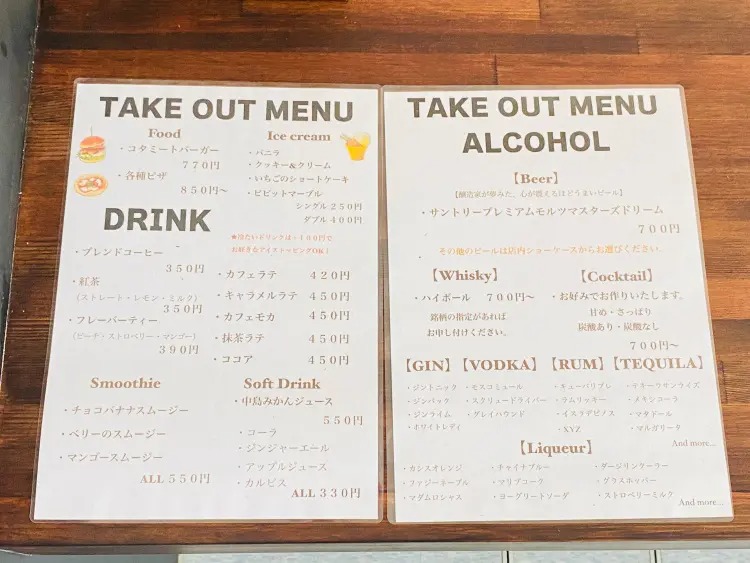 TAKE OUT MENU
Food
・コタミートバーガー
770円
・各種ピザ
850円〜
Ice cream
・バニラ
・クッキー&クリーム
・いちごのショートケーキ
・ビビットマーブル
シングル250円
ダブル400円
DRINK
★冷たいドリンクは+100円で
お好きなアイストッピングOK!
・ブレンドコーヒー
350円
・紅茶
(ストレート・レモン・ミルク)
350円
・フレーバーティー
(ピーチ・ストロベリー・マンゴー)
390円
・カフェラテ 420円
・キャラメルラテ 450円
・カフェモカ 450円
・抹茶ラテ 450円
・ココア 450円
Smoothie
・チョコバナナスムージー
・ベリーのスムージー
・マンゴースムージー
ALL 550円
Soft Drink
・中島みかんジュース
550円
・コーラ
・ジンジャーエール
・アップルジュース
・カルピス
ALL 330円
TAKE OUT MENU
ALCOHOL
【Beer】
【醸造家が夢みた、心が震えるほどうまいビール】
・サントリープレミアムモルツマスターズドリーム
700円
その他のビールは店内ショーケースからお選びください。
【Whisky】
・ハイボール 700円〜
銘柄の指定があれば
お申し付けください。
【Cocktail】
・お好みでお作りいたします。
甘め・さっぱり
炭酸あり・炭酸なし
700円〜
【GIN】【VODKA】【RUM】【TEQUILA】
・ジントニック
・ジンバック
・ジンライム
・ホワイトレディ
・モスコミュール
・スクリュードライバー
・グレイハウンド
・キューバリブレ
・ラムリッキー
・XYZ
・テキーラサンライズ
・メキシコーラ
・マタドール
・マルガリータ
And more...
【Liqueur】
・カシスオレンジ
・ファジーネーブル
・マダムロシャス
・チャイナブルー
・マリブコーク
・ヨーグリートソーダ
・ダージリンクーラー
・グラスホッパー
・ストロベリーミルク
And more...